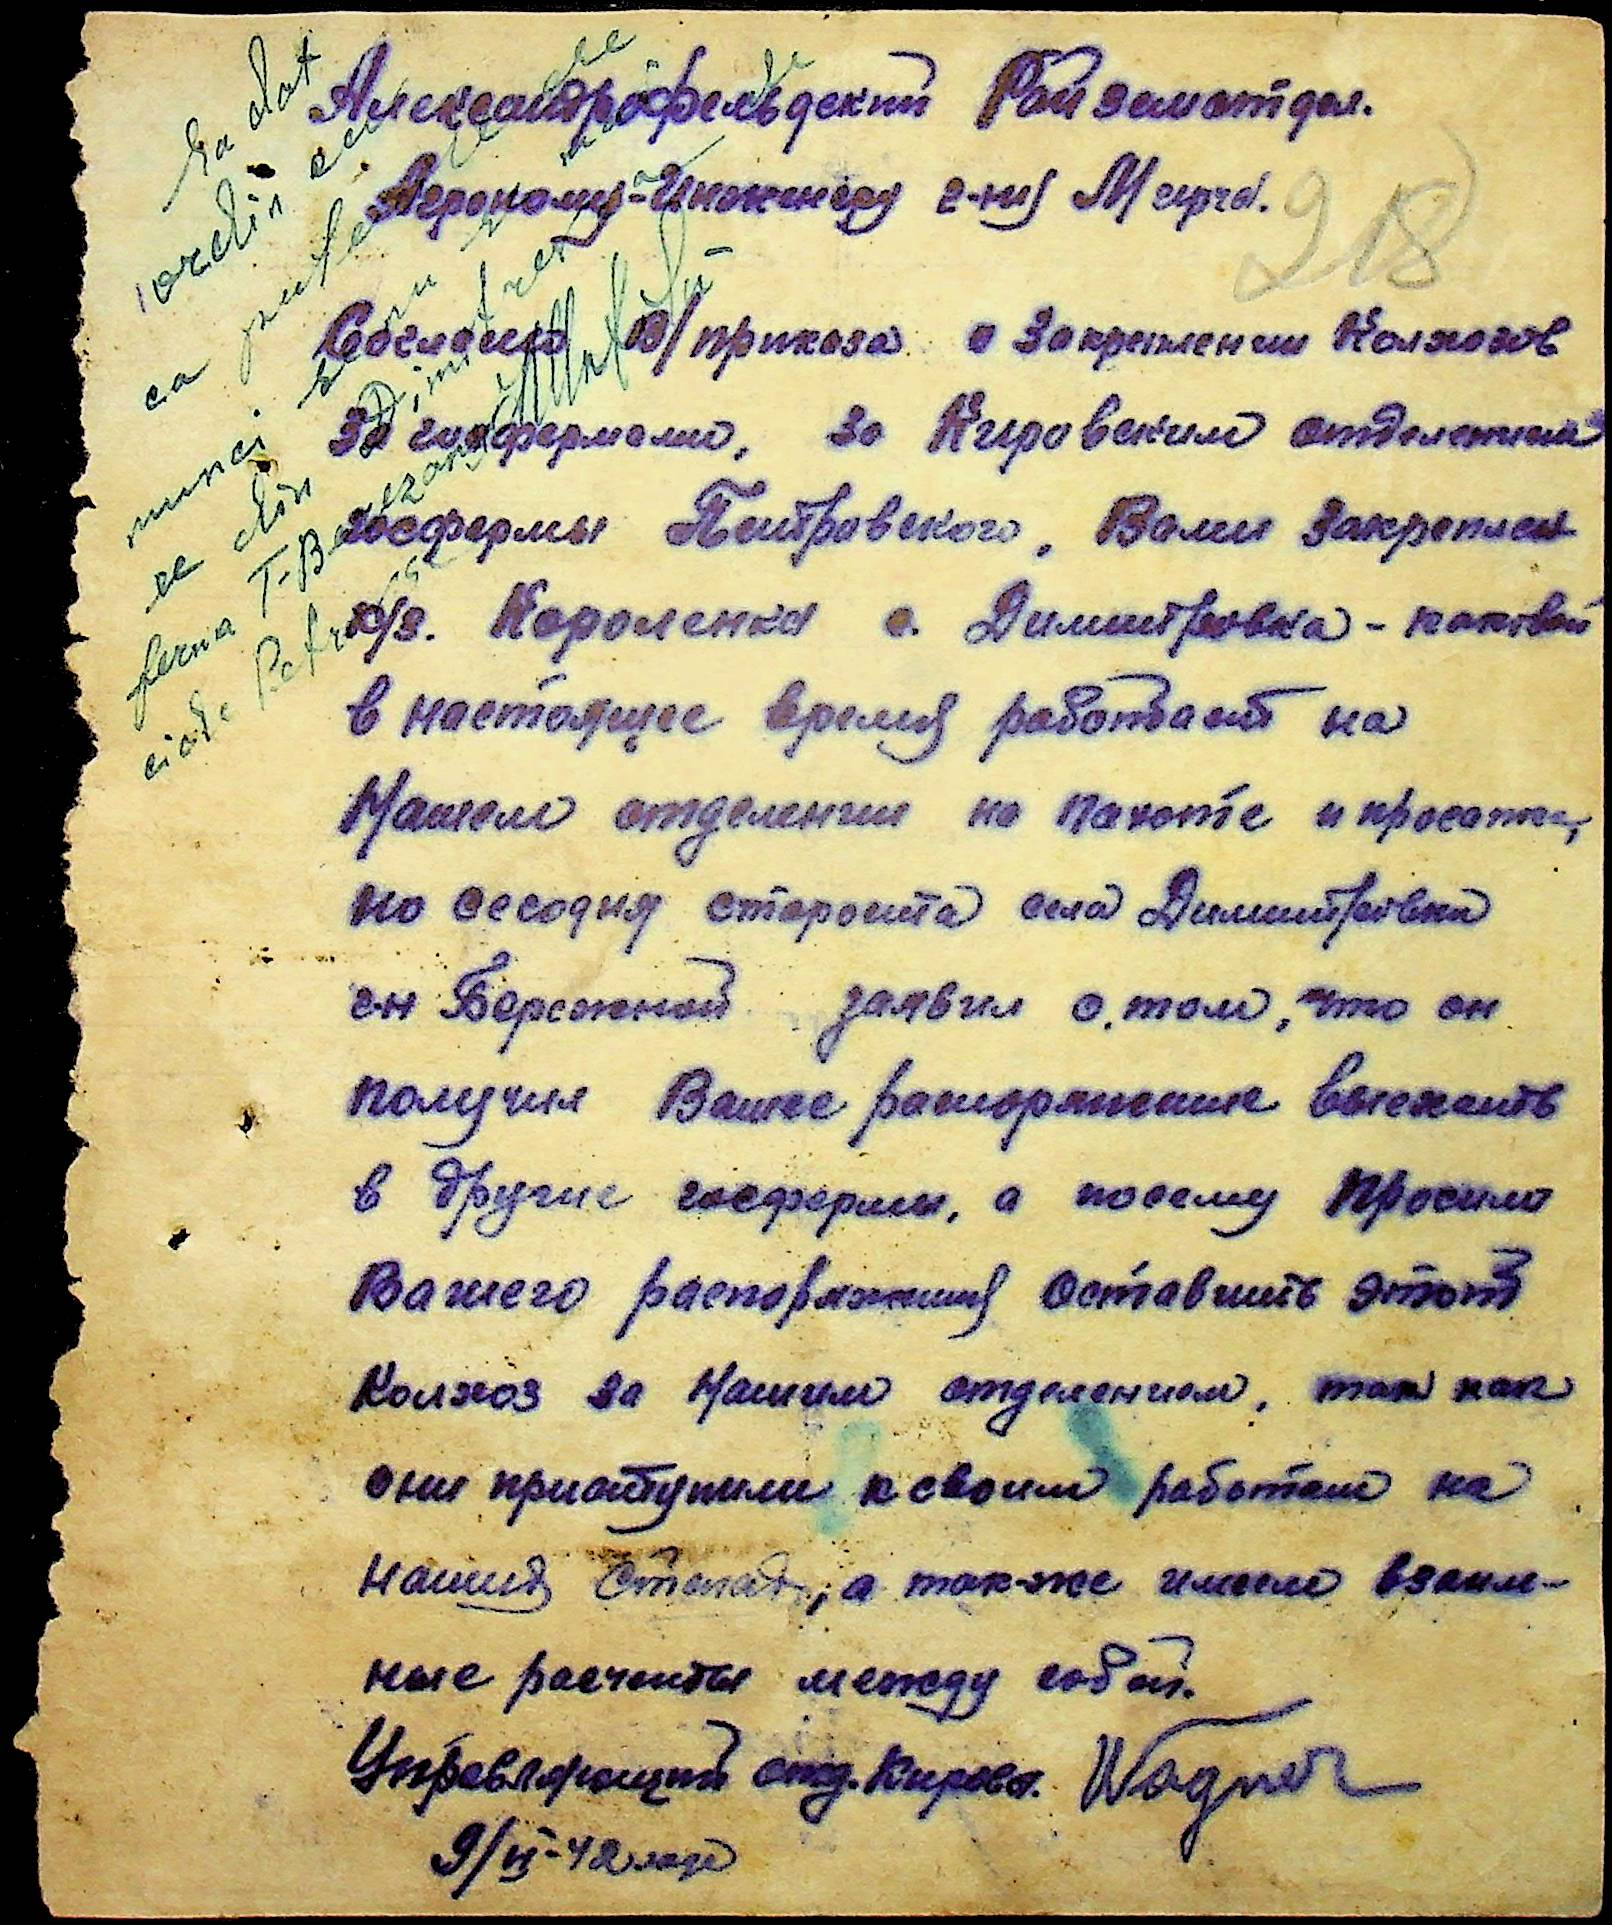 Александрофельдский Райземотдел.
Агроному-Инженеру г-ну Мирча.
218
Согласно В/приказа о закреплении Колхозов
за госфермами, за Кировским отделением
госфермы Петровского, Вами закреплен
к/з. Короленка с. Димитровка - каковой
в настоящее время работает на
Нашем отделении на пахоте и просапки,
но сегодня староста села Димитровки
г-н Бережной заявил о том, что он
получил Ваше распоряжение выезжать
в другие госфермы, а посему просим
Вашего распоряжения оставить этот
Колхоз за Нашим отделением, так как
они приступили к своим работам на
наших степях, а так-же имеем взаим-
ные расчеты между собой.
Управляющий отд. Кирова. Wagner
9/VI-42 года
Sa dat
ordin
ca
munci
se din Dimitrevca
ferma T-B